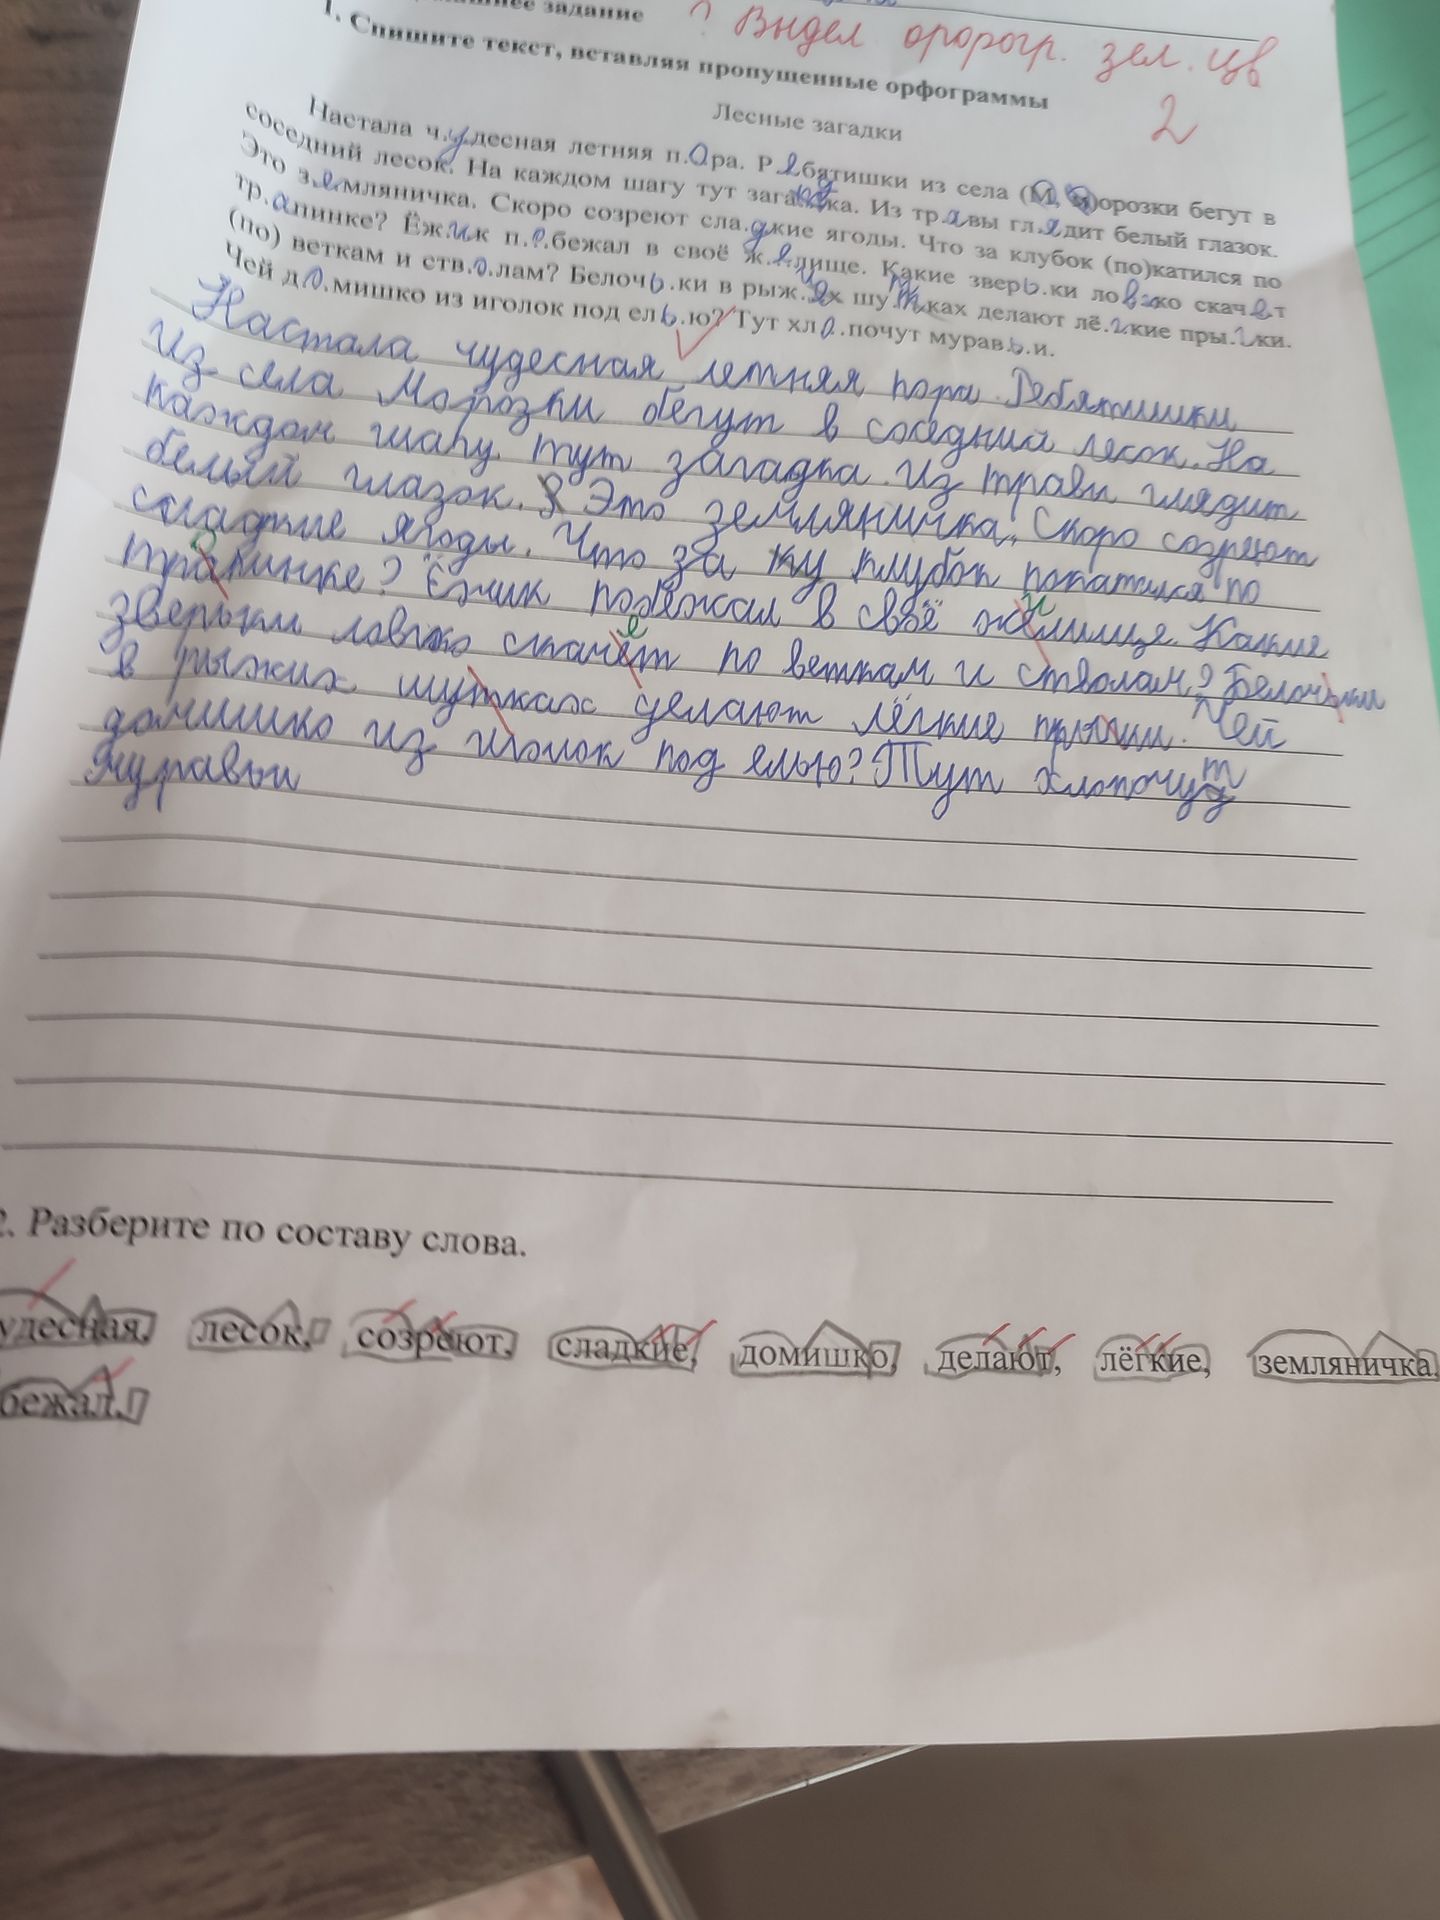 задание ? Выдел оророгр. зел. цв
1. Спишите текст, вставляя пропущенные орфограммы
2
Лесные загадки
Настала ч.у.десная летняя п.о.ра. Р.е.бятишки из села (М, м)орозки бегут в
соседний лесок. На каждом шагу тут загадка. Из тр.а.вы гл.я.дит белый глазок.
Это з.е.мляничка. Скоро созреют сла.д.кие ягоды. Что за клубок (по)катился по
тр.а.пинке? Ёж.и.к п.о.бежал в своё ж.е.лище. Какие зверь.ки ловко скач.е.т
(по) веткам и ств.о.лам? Белочь.ки в рыж.их шу.т.ках делают лё.г.кие пры.г.ки.
Чей д.о.мишко из иголок под ель.ю? Тут хло.почут муравь.и.
Настала чудесная летняя пора. Ребятишки
из села Морозки бегут в соседний лесок. На
каждом шагу тут загадка. Из травы глядит
белый глазок. Это земляничка. Скоро созреют
сладкие ягоды. Что за клубок покатился по
трапинке? Ёжик побежал в своё желище. Какие
зверьки ловко скачет по веткам и стволам? Белочьки
в рыжих шутках делают лёгкие прыжки. Чей
домишко из иголок под елью? Тут хлопочут
муравьи
2. Разберите по составу слова.
удесная, лесок, созреют, сладкие, домишко, делают, лёгкие, земляничка,
бежал.